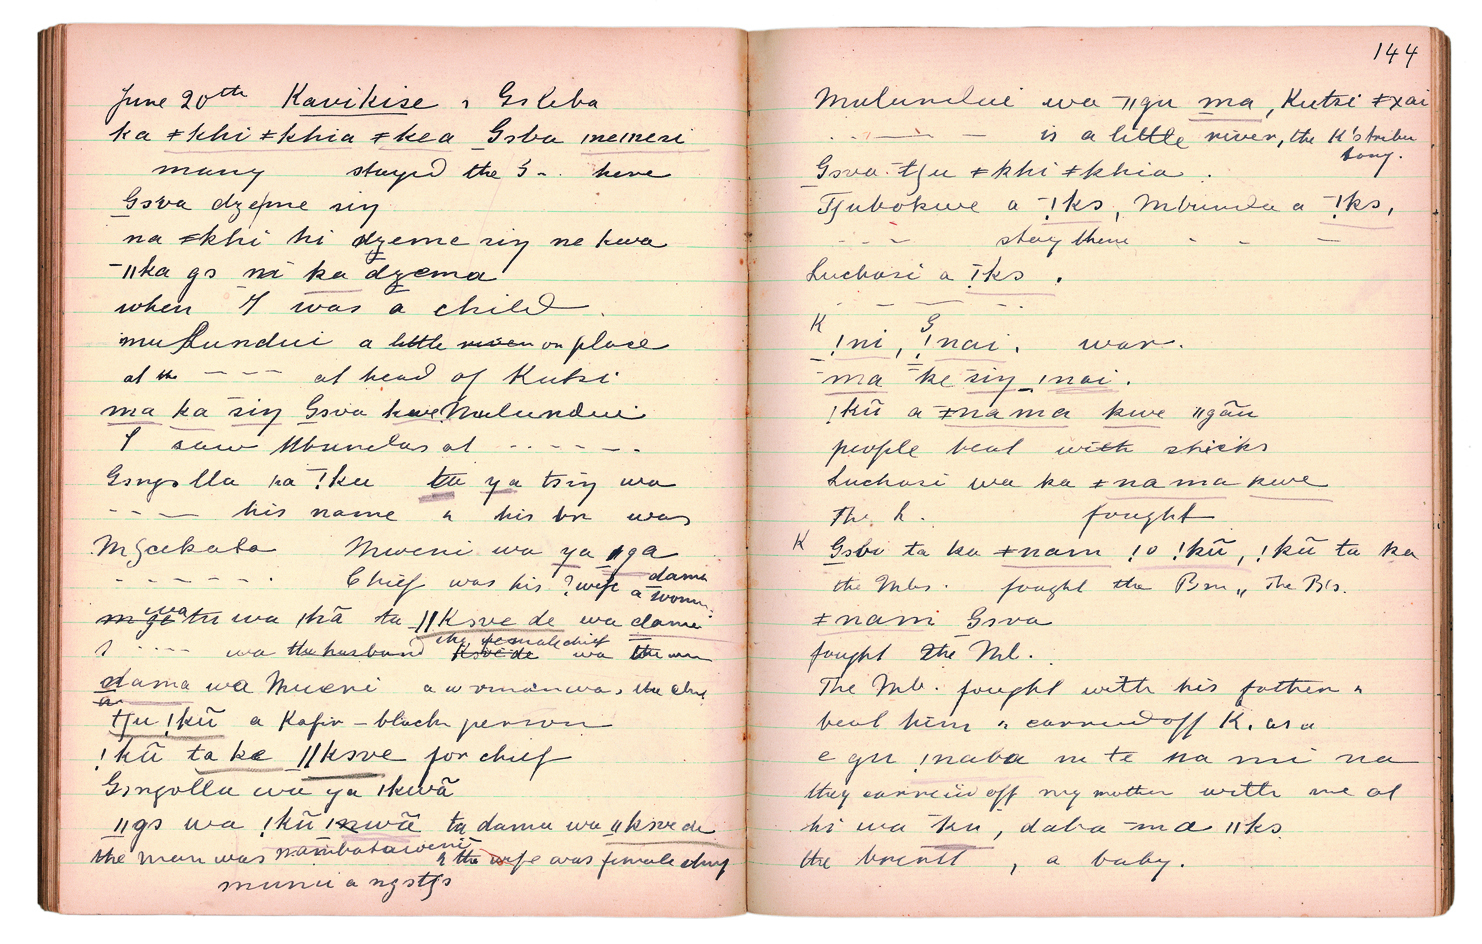 June 20th Kavikise , Gskba
ka ǂkhi ǂkhia ǂkea Gsba ineineri
many stayed the G -. here
Gsva dzeme siŋ
na ǂkhi hi dzeme siŋ ne kwa
ǁka gs ni ka dzema
when I was a child.
mulundui a little river or place
at the - - - at head of Kutsi
ma ka siŋ Gsva kwe Mulundui
I saw Mbundas at - - - -.
Gsngolla ka !ku ta ya tsiŋ wa
- - - - his name & his br was
Mweni wa ya ǁga
- - - - - -. Chief was his ? wife dama a woman
wa !kã ta ǁKsve de wa dama
the female chief
wa the husband Ksvede wa the
dama wa Mueni a woman was the chief
tʃu !kũ a Kafir - black person
!kũ ta ke ǁksve for chief
Gsngolla wa ya !kwã
ǁgs wa !kũ !nwã ta dama wa ǁksve de
the man was & the wife was female chief
144
Mulundui wa ǁgu ma, Kutsi ǂxai
- - - is a little river, the K's tribu tary.
Gsva tʃu ǂkhi ǂkhia.
Tʃubokwe a !ks, Mbunda a !ks,
- - - stay there - - -
Luchasi a !ks.
- - - - -
K !ni, G !nai. war.
ma ke siŋ !nai.
!kũ a ǂnama kwe ǁgãu
people beat with sticks
Luchasi wa ka ǂnama kwe
The L. fought
K Gsbo ta ka ǂnam !o !kũ, !kũ ta ka
the Mbs. fought the Bm ,, The B's.
ǂnam Gsva
fought The Mb.
The Mb. fought with his father &
beat him & carried off K. as a
e gu !naba ne te na mi na
they carried off my mother with me at
hi wa ku, daba ma ǁks
the breast, a baby.